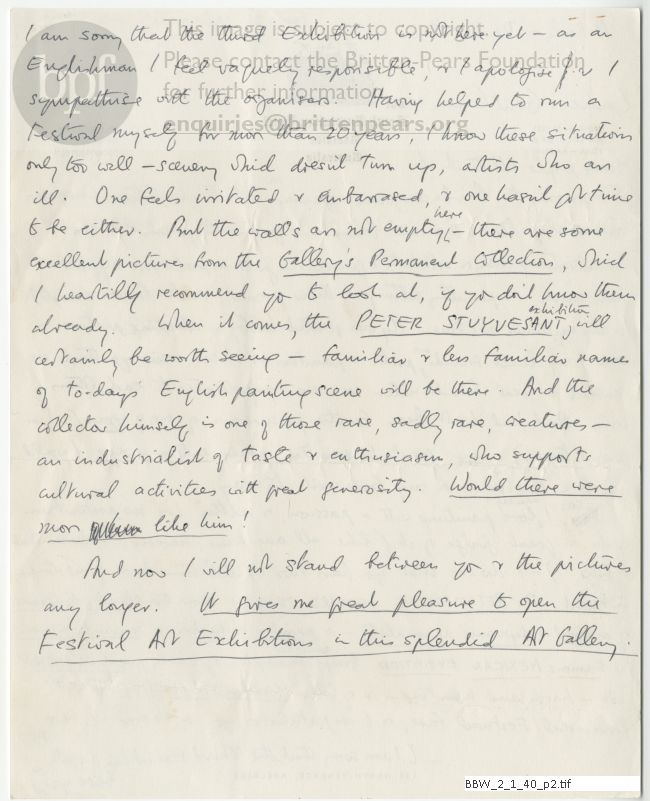 This image is subject to copyright.
Please contact the Britten-Pears Foundation
for further information
enquiries@brittenpears.org
bpf
I am sorry that the third Exhibition is not here yet – as an
Englishman I feel vaguely responsible, & I apologise, & I
sympathise with the organisers. Having helped to run a
Festival myself for more than 20 years, I know these situations
only too well – scenery which doesn't turn up, artists who are
ill. One feels irritated & embarrassed, & one hasn't got time
to be either. But the walls are not empty here – there are some
excellent pictures from the Gallery's Permanent Collection, which
I heartily recommend you to look at, if you don't know them
already. When it comes, the PETER STUYVESANT exhibition, will
certainly be worth seeing – familiar & less familiar names
of to-day's English painting scene will be there. And the
collector himself is one of those rare, sadly rare, creatures –
an industrialist of taste & enthusiasm, who supports
cultural activities with great generosity. Would there were
more like him!
And now I will not stand between you & the pictures
any longer. It gives me great pleasure to open the
Festival Art Exhibitions in this splendid Art Gallery.
BBW_2_1_40_p2.tif